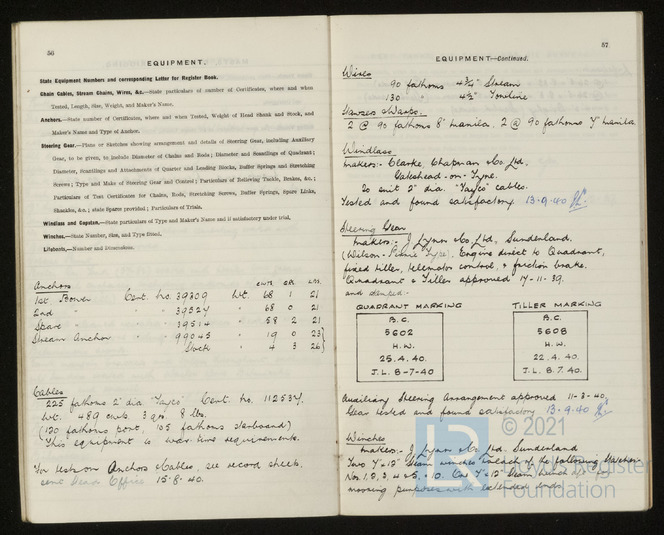 56
EQUIPMENT.
State Equipment Numbers and corresponding Letter for Register Book.
Chain Cables, Stream Chains, Wires, &c.—State particulars of number of Certificates, where and when
Tested, Length, Size, Weight, and Maker's Name.
Anchors.—State number of Certificates, where and when Tested, Weight of Head Shank and Stock, and
Maker's Name and Type of Anchor.
Steering Gear.—Plans or Sketches showing arrangement and details of Steering Gear, including Auxiliary
Gear, to be given, to include Diameter of Chains and Rods; Diameter and Scantlings of Quadrant;
Diameter, Scantlings and Attachments of Quarter and Leading Blocks, Buffer Springs and Stretching
Screws; Type and Make of Steering Gear and Control; Particulars of Relieving Tackle, Brakes, &c.;
Particulars of Test Certificates for Chains, Rods, Stretching Screws, Buffer Springs, Spare Links,
Shackles, &c.; state Spares provided; Particulars of Trials.
Windlass and Capstan.—State particulars of Type and Maker's Name and if satisfactory under trial.
Winches.—State Number, Size, and Type fitted.
Lifeboats.—Number and Dimensions.
Anchors cwts qr. lbs.
1st Bower Cert. no. 39309 Wt. 68 1 21
2nd " " 39527 " 68 0 21
Spare " " 39514 " 58 2 21
Stream Anchor " 99045 " 19 0 23
Stock " 4 3 26
Cables
225 fathoms 2" dia "Tayco" Cert. no. 112537.
Wt. 489 cwts. 3 qrs. 8 lbs.
(120 fathoms port, 105 fathoms starboard)
This equipment to war time requirements.
For tests on Anchors & Cables, see record sheets
sent Head Office 15.8.40.
57
EQUIPMENT—Continued.
Wires
90 fathoms 4¾" Stream
130 " 4½" Towline
Hawsers & Warps.
2 @ 90 fathoms 8" manila, 2 @ 90 fathoms 7" manila
Windlass
Makers:- Clarke, Chapman & Co. Ltd.
Gateshead-on-Tyne.
To suit 2" dia. "Tayco" cables.
Tested and found satisfactory 13.9.40
Steering Gear
Makers:- J Lynn & Co Ltd, Sunderland.
(Wilson-Pirrie Type). Engine direct to Quadrant,
fixed tiller, telemotor control, & friction brake.
Quadrant & Tiller approved 17-11-39.
and stamped.
QUADRANT MARKING
B.C.
5602
H.W.
25.4.40.
J.L. 8-7-40
TILLER MARKING
B.C.
5608
H.W.
22.4.40.
J.L. 8.7.40.
Auxiliary Steering Arrangement approved 11-3-40.
Gear tested and found satisfactory 13.9.40
Winches
Makers:- J Lynn & Co Ltd. Sunderland
Two 7"×12" steam winches in each of the following Hatches:-
Nos 1, 2, 3, 4 & 5, = 10. One 7"×12" steam winch aft for
mooring purposes with extended ends.
© 2021
Lloyd's Register
Foundation